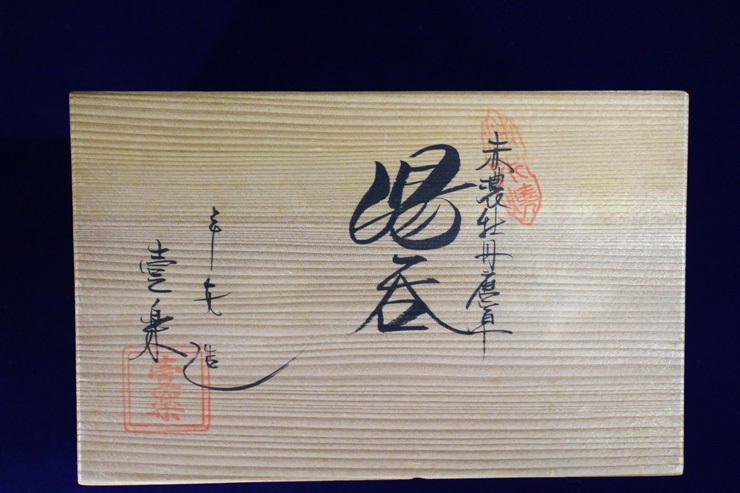 赤濃牡丹唐草
湯呑
造
壹楽
壹楽